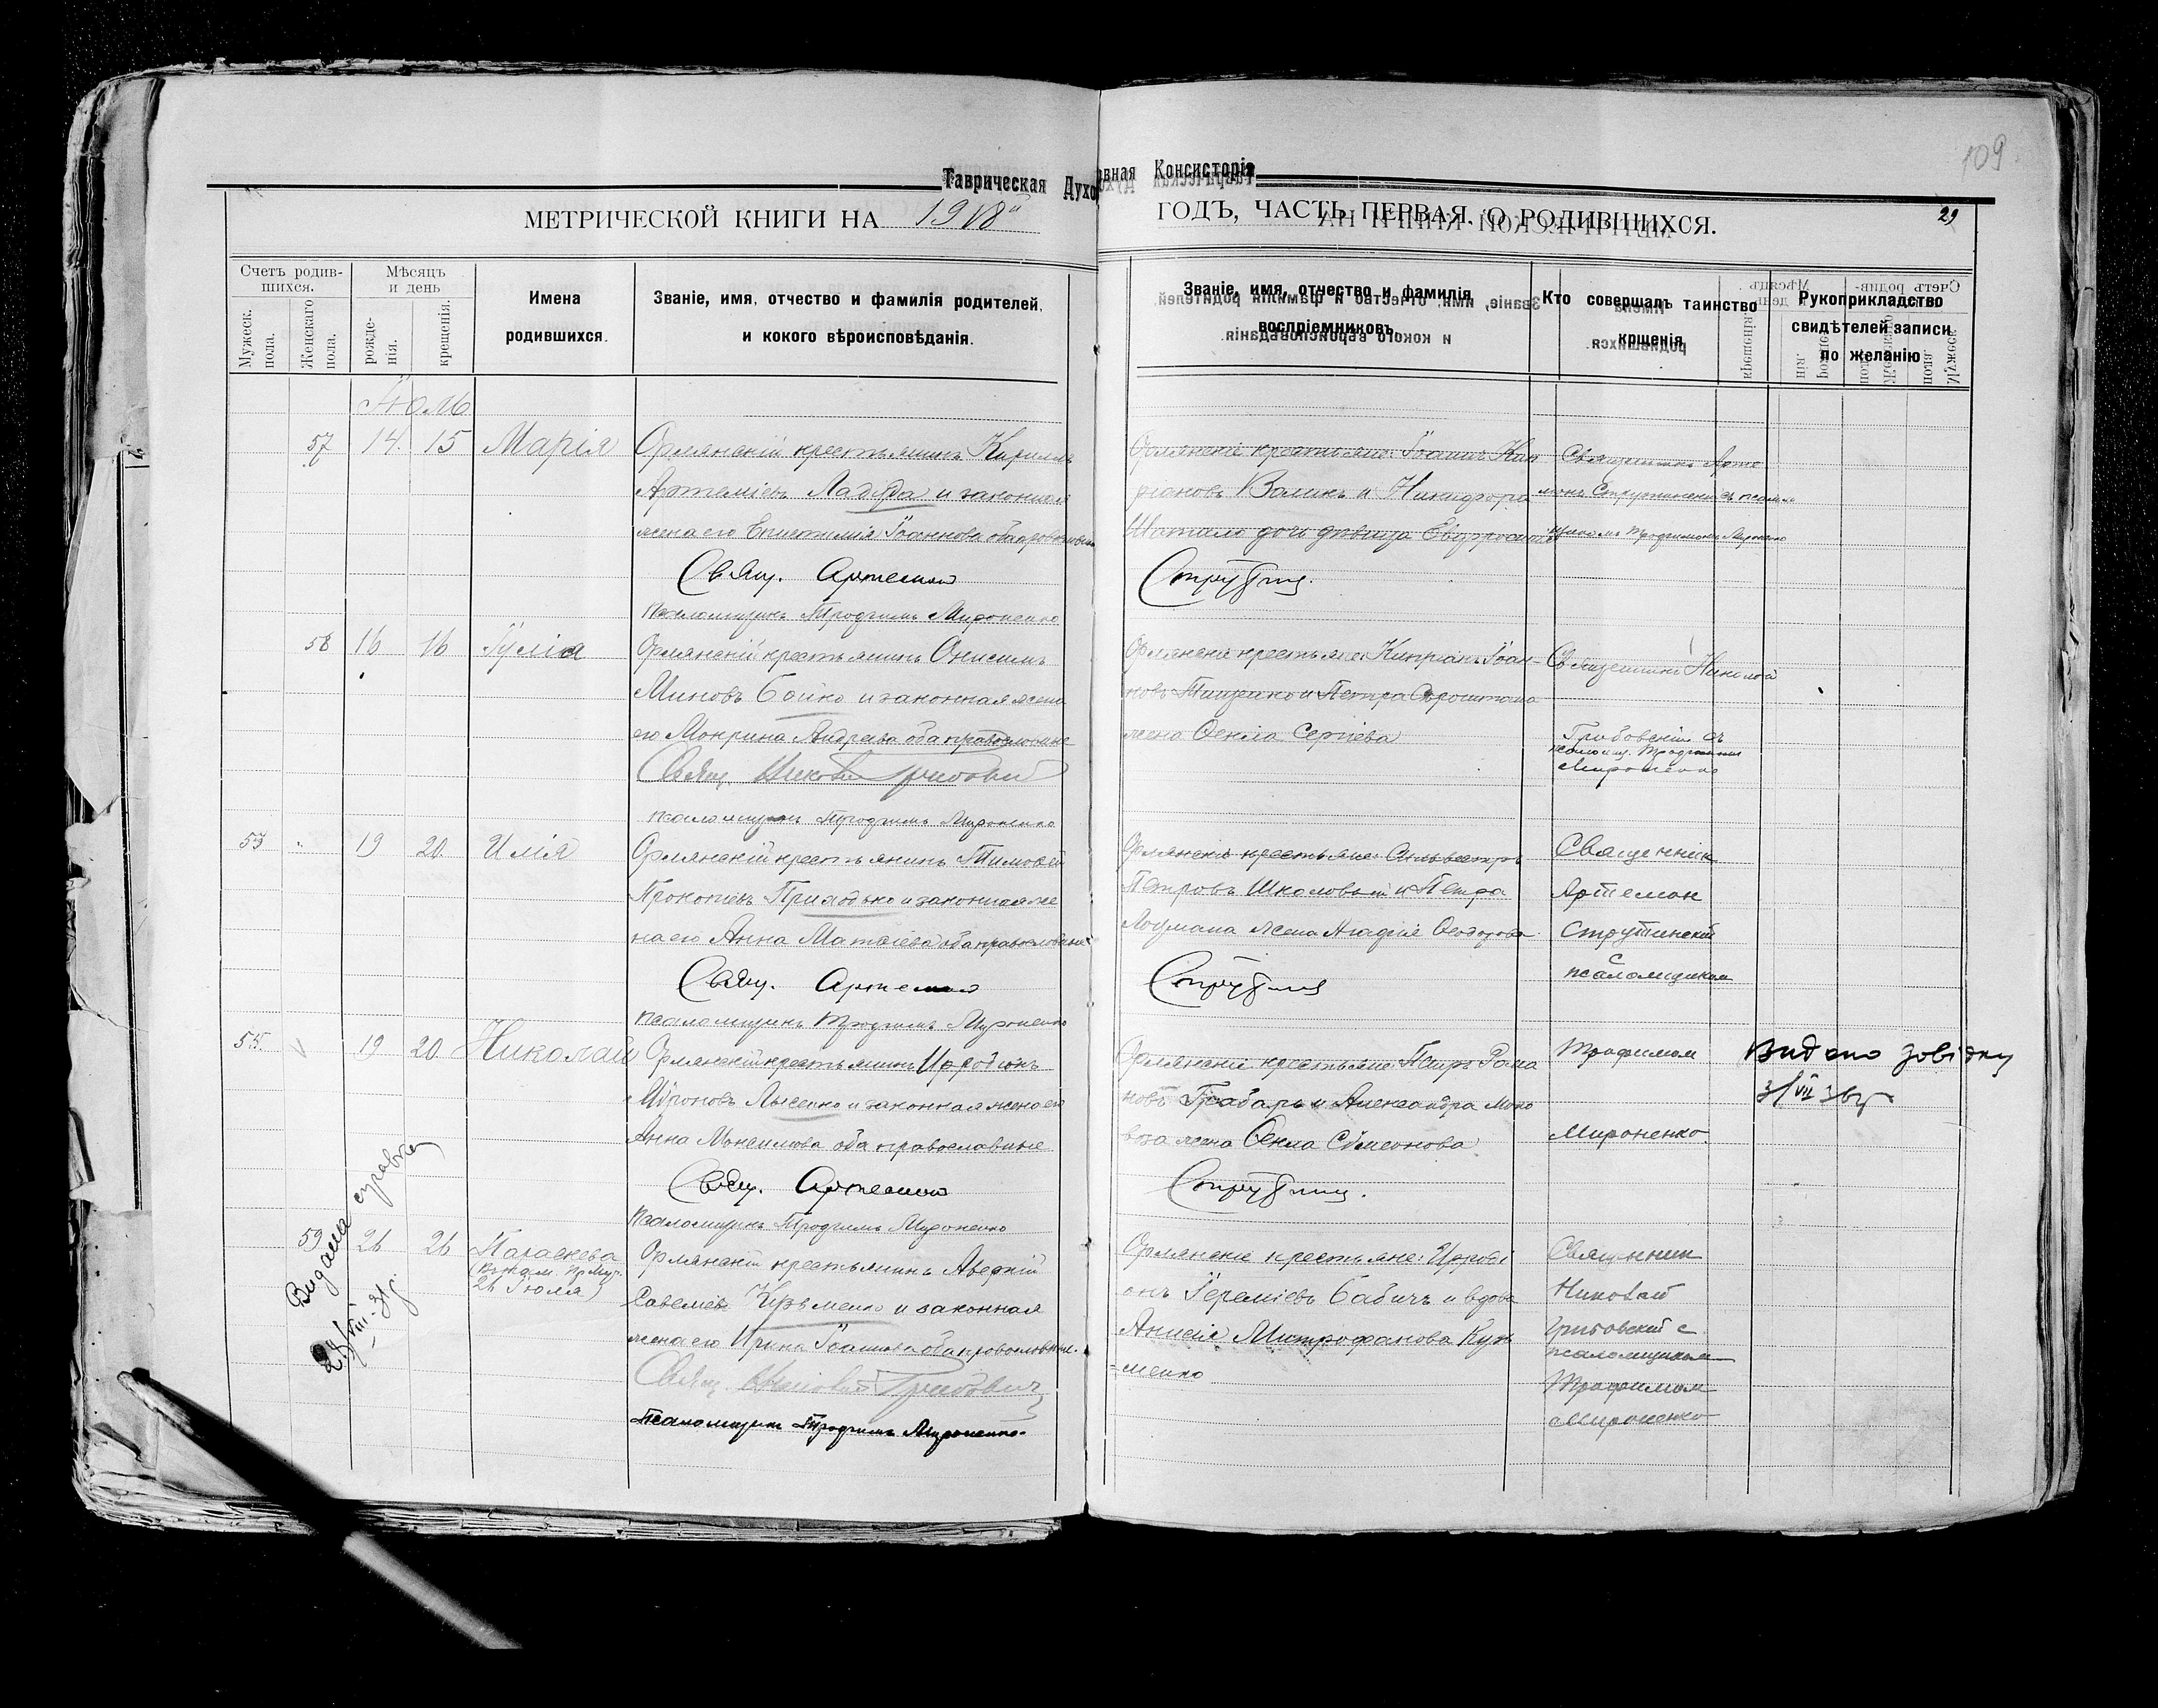 Таврическая Духовная Консисторія
109
МЕТРИЧЕСКОЙ КНИГИ НА 1918й ГОДЪ, ЧАСТЬ ПЕРВАЯ, О РОДИВШИХСЯ.
29
Счетъ родившихся.
Мужеск. пола.
Женскаго пола.
Мѣсяцъ и день
рожденія.
крещенія.
Имена родившихся.
Званіе, имя, отчество и фамилія родителей,
и кокого вѣроисповѣданія.
Званіе, имя, отчество и фамилія
воспріемниковъ
Кто совершалъ таинство
крщенія
Рукоприкладство
свидѣтелей записи
по желанію
Іюль
57 14. 15 Марія
Орлянскій крестьянинъ Кириллъ
Артеміевъ Ладыда и законная
жена его Епистимія Іоаннова оба православные
Свящ. Артемон
Псаломщикъ Трофимъ Мироненко
Орлянскіе крестьяне: Іоаннъ
Воликъ и Никифора
Шатило дочь дѣвица Евфросинія
Струтинс.
Священникъ Арте
монъ Струтинскій съ псалом
щикомъ Трофимомъ Мироненко
58 16 16 Іулія
Орлянскій крестьянинъ Онисимъ
Миновъ Бойко и законная жена
его Мокрина Андреева оба православные
Свящ. Николай Грибовский
псаломщикъ Трофимъ Мироненко
Орлянскіе крестьяне: Кипріанъ Іоан-
новъ Тищенко и Петра
жена Ѳекла Сергіева
Священникъ Николай
Грибовскій съ
псаломщ. Трофимомъ
Мироненко
53 19 20. Илія
Орлянскій крестьянинъ Тимоѳей
Прокопіевъ Приходько и законная же
на его Анна Матѳіева оба православные
Свящ. Артемон
псаломщикъ Трофимъ Мироненко
Орлянскіе крестьяне: Сильвестръ
Петровъ Школовый и Петра
Лоцмана жена Агафія Ѳеодорова
Струтинс
Священник
Артемон
Струтинский
с
псаломщиком
Трофимом
Мироненко.
19 20 Николай
Орлянскій крестьянинъ Иродіонъ
Мироновъ Лысенко и законная жена его
Анна Максимова оба православные
Свящ. Артемон
Псаломщикъ Трофимъ Мироненко
Орлянскіе крестьяне: Петръ Рома
новъ Грабарь и Александра Моко
жена Ѳекла Сѵмеонова
Струтинс.
Видано довідку
31/VII 36 р
59 26 26 Параскева
26 Іюля)
Видана справка
31 г.
Орлянскій крестьянинъ Авдій
Савеліевъ и законная
жена его Ирина Іоаннова оба православные.
Свящ. Николай Грибович
Псаломщикъ Трофимъ Мироненко.
Орлянскіе крестьяне: Ироді
онъ Іереміевъ Бабичъ и вдова
Анисія Митрофанова Куз
=менко
Священник
Николай
Грибовский с
псаломщиком
Трофимом
Мироненко